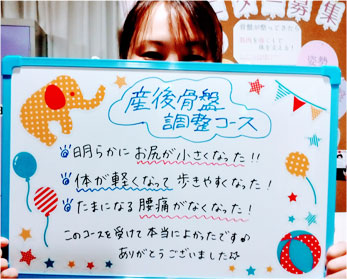 産後骨盤
調整コース
明らかにお尻が小さくなった!!
体が軽くなって歩きやすくなった!
たまになる腰痛がなくなった!
このコースを受けて本当によかったです
ありがとうございました
募集
姿勢